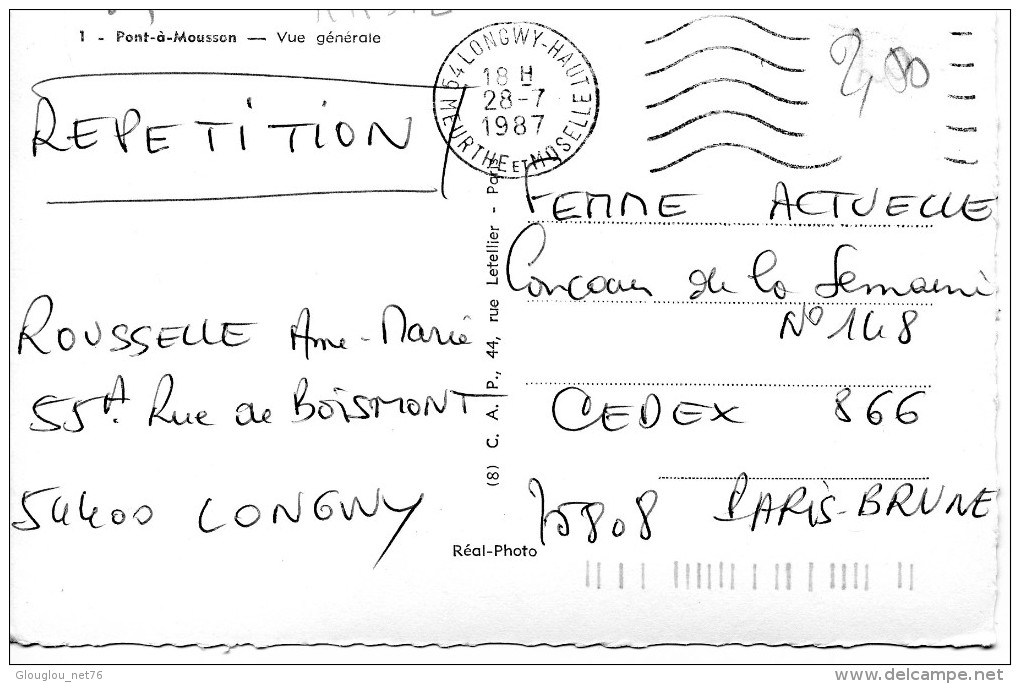 1 - Pont-à-Mousson — Vue générale
54 LONGWY-HAUT
18 H
28-7
1987
MEURTHE ET MOSELLE
2,00
REPETITION
ROUSSELLE Anne-Marie
55A Rue de BOISMONT
54400 LONGWY
(8) C. A. P., 44, rue Letellier - Paris
Réal-Photo
FEMME ACTUELLE
Concours de la Semaine
N° 148
CEDEX 866
75808 PARIS-BRUNE
Glouglou_net76
delcampe.net